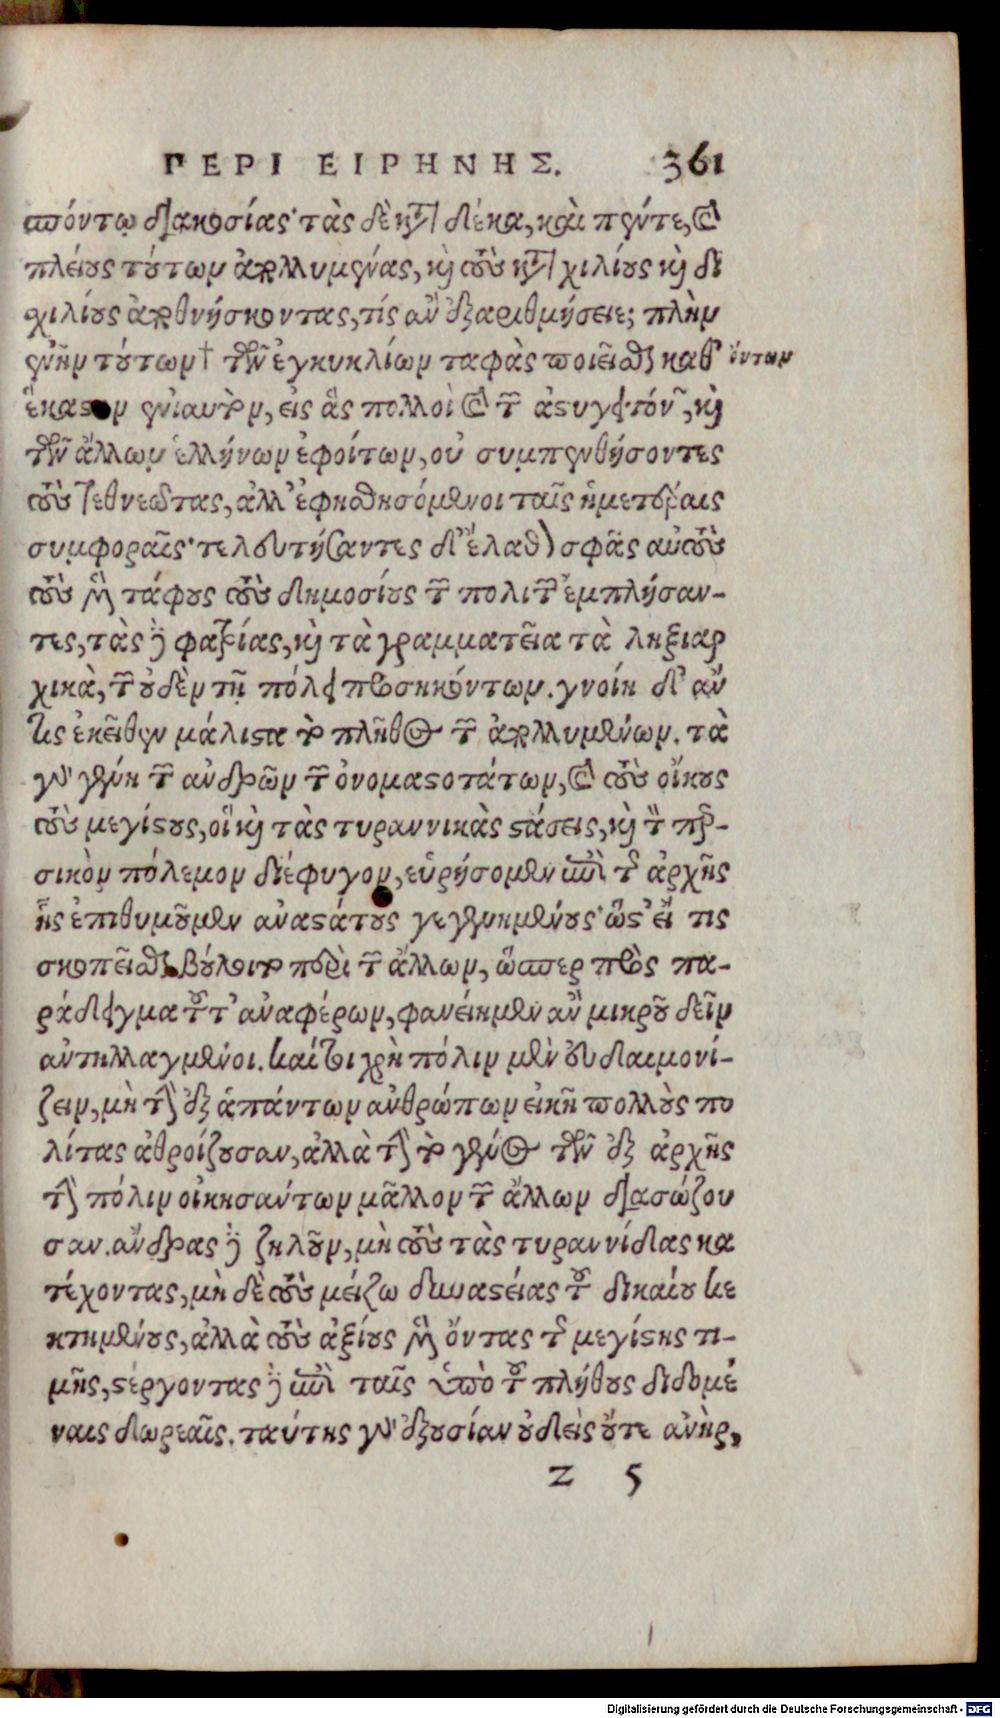 ΠΕΡΙ ΕΙΡΗΝΗΣ. 361
πόντῳ διακοσίας· τὰς δὲ κατὰ δέκα, καὶ πέντε, καὶ
πλείους τούτων ἀπολλυμένας, καὶ τοὺς κατὰ χιλίους καὶ δι
χιλίους ἀποθνήσκοντας, τίς ἂν ἐξαριθμήσειε; πλὴν
ἓν ἦν τούτων† τῶν ἐγκυκλίων ταφὰς ποιεῖσθαι καθ' ὄντων
ἕκαστον ἐνιαυτὸν, εἰς ἃς πολλοὶ καὶ τῶν ἀστυγειτόνων, καὶ
τῶν ἄλλων ἑλλήνων ἐφοίτων, οὐ συμπενθήσοντες
τοὺς τεθνεῶτας, ἀλλ' ἐφησθησόμενοι ταῖς ἡμετέραις
συμφοραῖς· τελευτήσαντες δ' ἔλαθον σφᾶς αὐτοὺς
τοὺς μὲν τάφους τοὺς δημοσίους τῶν πολιτῶν ἐμπλήσαν-
τες, τὰς δὲ φατρίας, καὶ τὰ γραμματεῖα τὰ ληξιαρ
χικὰ, τῶν οὐδὲν τῇ πόλει προσηκόντων. γνοίη δ' ἄν
τις ἐκεῖθεν μάλιστα τὸ πλῆθος τῶν ἀπολλυμένων. τὰ
γὰρ γένη τῶν ἀνδρῶν τῶν ὀνομαστοτάτων, καὶ τοὺς οἴκους
τοὺς μεγίστους, οἳ καὶ τὰς τυραννικὰς στάσεις, καὶ τὸν περ-
σικὸν πόλεμον διέφυγον, εὑρήσομεν ἐπὶ τῆς ἀρχῆς
ἧς ἐπιθυμοῦμεν ἀναστάτους γεγενημένους· ὥστ' εἴ τις
σκοπεῖσθαι βούλοιτο περὶ τῶν ἄλλων, ὥσπερ πρὸς πα-
ράδειγμα τοῦτ' ἀναφέρων, φανείημεν ἂν μικροῦ δεῖν
ἀντηλλαγμένοι. καίτοι χρὴ πόλιν μὲν εὐδαιμονί-
ζειν, μὴ τὴν ἐξ ἁπάντων ἀνθρώπων εἰκῆ πολλοὺς πο
λίτας ἀθροίζουσαν, ἀλλὰ τὴν τὸ γένος τῶν ἐξ ἀρχῆς
τὴν πόλιν οἰκησάντων μᾶλλον τῶν ἄλλων διασώζου
σαν. ἄνδρας δὲ ζηλοῦν, μὴ τοὺς τὰς τυραννίδας κα
τέχοντας, μὴ δὲ τοὺς μείζω δυναστείας τοῦ δικαίου κε
κτημένους, ἀλλὰ τοὺς ἀξίους μὲν ὄντας τῆς μεγίστης τι-
μῆς, στέργοντας δὲ ἐπὶ ταῖς ὑπὸ τοῦ πλήθους διδομέ
ναις δωρεαῖς. ταύτης γὰρ ἐξουσίαν οὐδεὶς οὔτε ἀνὴρ,
Z 5
Digitalisierung gefördert durch die Deutsche Forschungsgemeinschaft - DFG